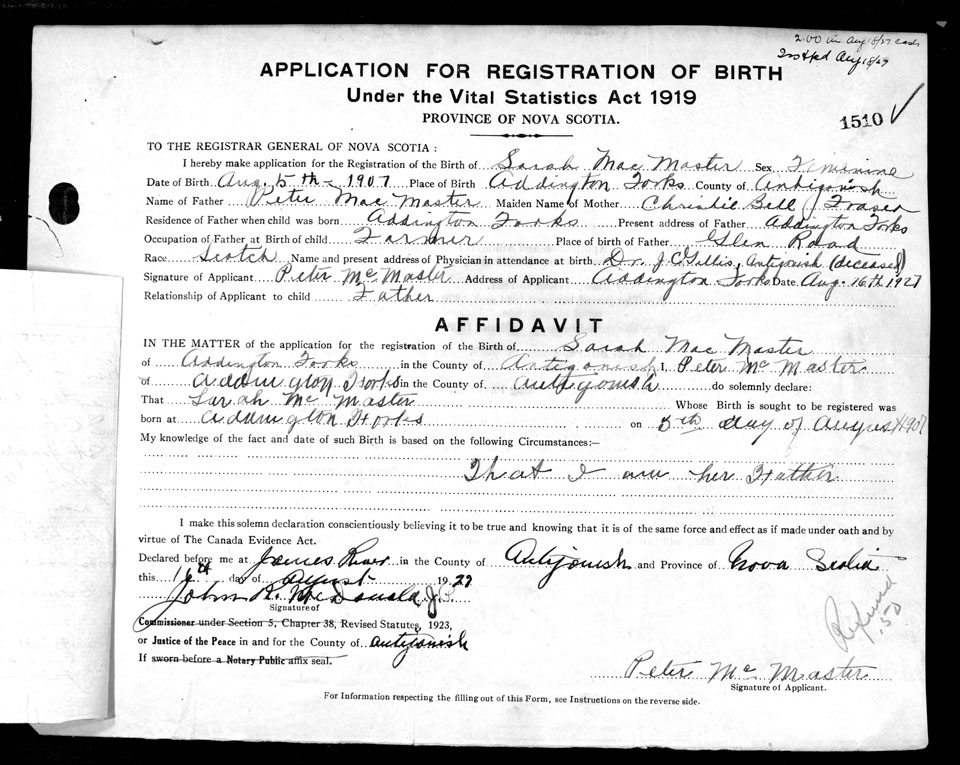 2.00 in Aug 18/27 cash
Aug 18/27
APPLICATION FOR REGISTRATION OF BIRTH
Under the Vital Statistics Act 1919
PROVINCE OF NOVA SCOTIA.
1510
TO THE REGISTRAR GENERAL OF NOVA SCOTIA :
I hereby make application for the Registration of the Birth of Sarah Mac Master Sex Feminine
Date of Birth Aug. 5th - 1907 Place of Birth Addington Forks County of Antigonish
Name of Father Peter Mac Master Maiden Name of Mother Christie Bell J Fraser
Residence of Father when child was born Addington Forks Present address of Father Addington Forks
Occupation of Father at Birth of child Farmer Place of birth of Father Glen Road
Race Scotch Name and present address of Physician in attendance at birth Dr. J.C. Gillis, Antigonish (deceased)
Signature of Applicant Peter Mc Master Address of Applicant Addington Forks Date Aug. 16th 1927
Relationship of Applicant to child Father
AFFIDAVIT
IN THE MATTER of the application for the registration of the Birth of Sarah Mac Master
of Addington Forks in the County of Antigonish I, Peter Mc Master
of Addington Forks in the County of Antigonish do solemnly declare:
That Sarah Mc Master Whose Birth is sought to be registered was
born at Addington Forks on 5th day of August 1907
My knowledge of the fact and date of such Birth is based on the following Circumstances:—
That I am her Father
I make this solemn declaration conscientiously believing it to be true and knowing that it is of the same force and effect as if made under oath and by
virtue of The Canada Evidence Act.
Declared before me at James River in the County of Antigonish and Province of Nova Scotia
this 16th day of August 1927
John R. McDonald J.P.
Signature of
Commissioner under Section 5, Chapter 38, Revised Statutes, 1923,
or Justice of the Peace in and for the County of Antigonish
If sworn before a Notary Public affix seal.
Refund
.50
Peter Mc Master
Signature of Applicant.
For Information respecting the filling out of this Form, see Instructions on the reverse side.